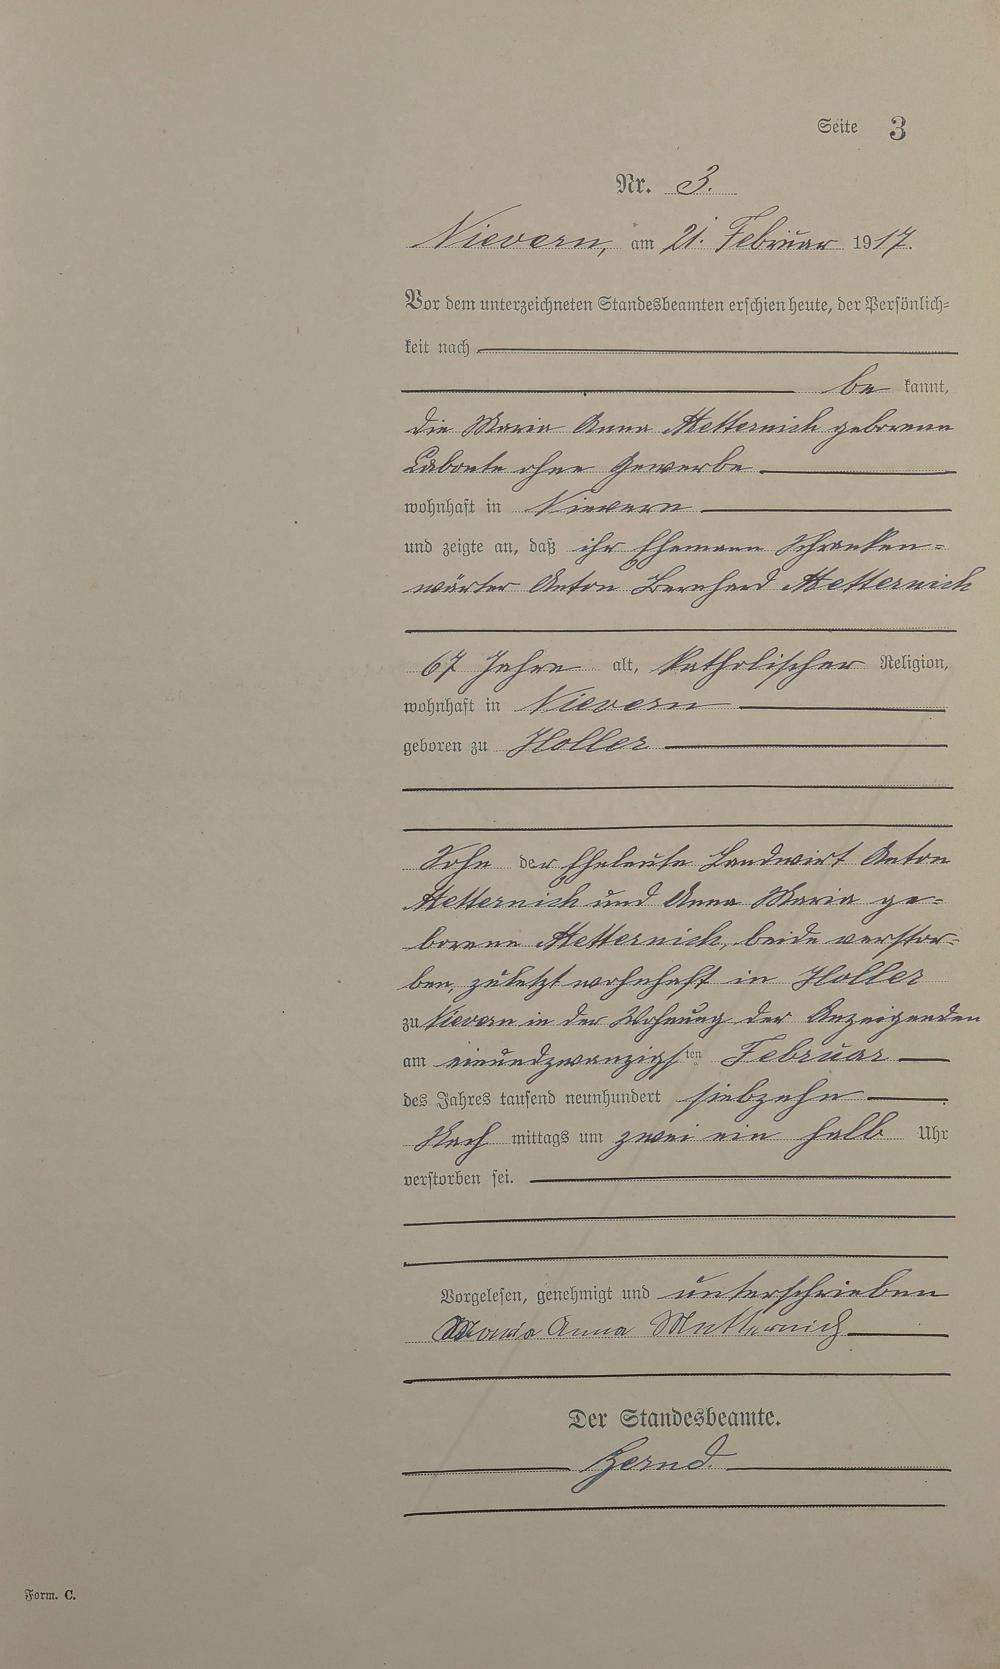 Seite 3
Nr. 3.
Nievern, am 21. Februar 1917.
Vor dem unterzeichneten Standesbeamten erschien heute, der Persönlich=
keit nach
be kannt,
die Maria Anna Metternich geborene
Labonte ohne Gewerbe
wohnhaft in Nievern
und zeigte an, daß ihr Ehemann Schranken=
wärter Anton Bernhard Metternich
67 Jahre alt, katholischer Religion,
wohnhaft in Nievern
geboren zu Holler
Sohn der Eheleute Landwirt Anton
Metternich und Anna Maria ge=
borene Metternich, beide verstor=
ben, zuletzt wohnhaft in Holler
zu Nievern in der Wohnung der Anzeigenden
am einundzwanzigsten Februar
des Jahres tausend neunhundert siebzehn
Nach mittags um zwei ein halb Uhr
verstorben sei.
Vorgelesen, genehmigt und unterschrieben
Maria Anna Metternich
Der Standesbeamte.
Form. C.